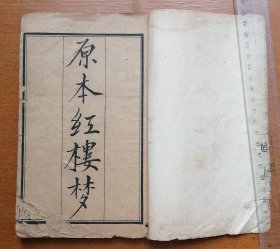 原本红樓梦